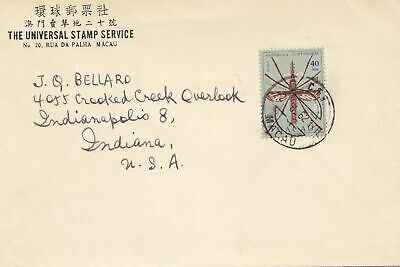 環球郵票社
澳門賣草地二十號
THE UNIVERSAL STAMP SERVICE
No 20, RUA DA PALHA MACAU
REPÚBLICA PORTUGUESA
40
MACAU
J. Q. BELLARD
4055 Crooked Creek Overlook
Indianapolis 8,
Indiana,
U. S. A.